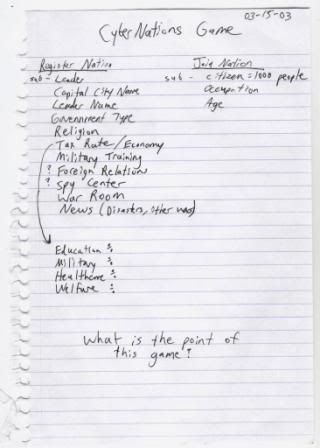 03-15-03
CyberNations Game
Register Nation
Join Nation
sub - Leader
sub - citizen = 1000 people
Capital City Name
Occupation
Leader Name
Age
Government Type
Religion
Tax Rate/Economy
Military Training
? Foreign Relation
? Spy Center
War Room
News (Disasters, other wars)
Education %
Military %
Healthcare %
Welfare %
What is the point of
this game?